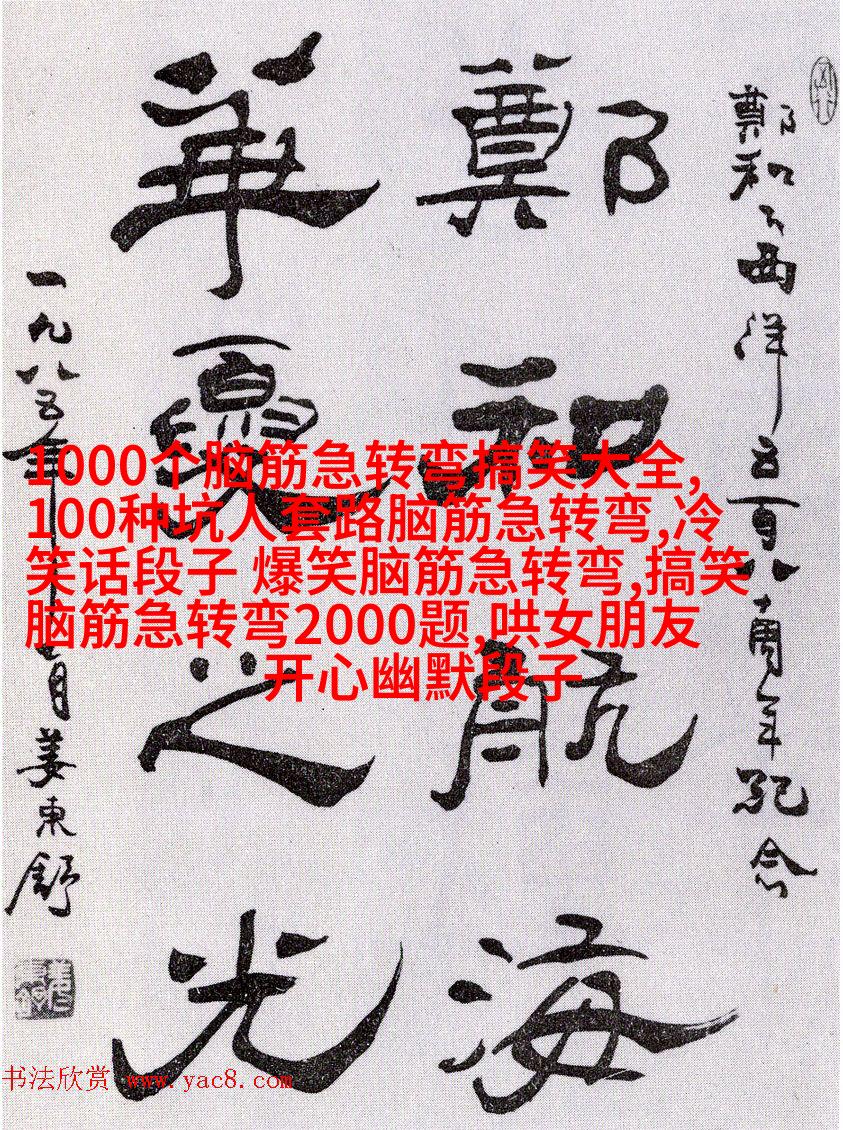 鄭和下西洋五百八十周年紀念
鄭和航海
華夏之光
一九八五年十二月姜東舒
1000个脑筋急转弯搞笑大全,
100种坑人套路脑筋急转弯,冷
笑话段子 爆笑脑筋急转弯,搞笑
脑筋急转弯2000题,哄女朋友
开心幽默段子
书法欣赏 www.yac8.com